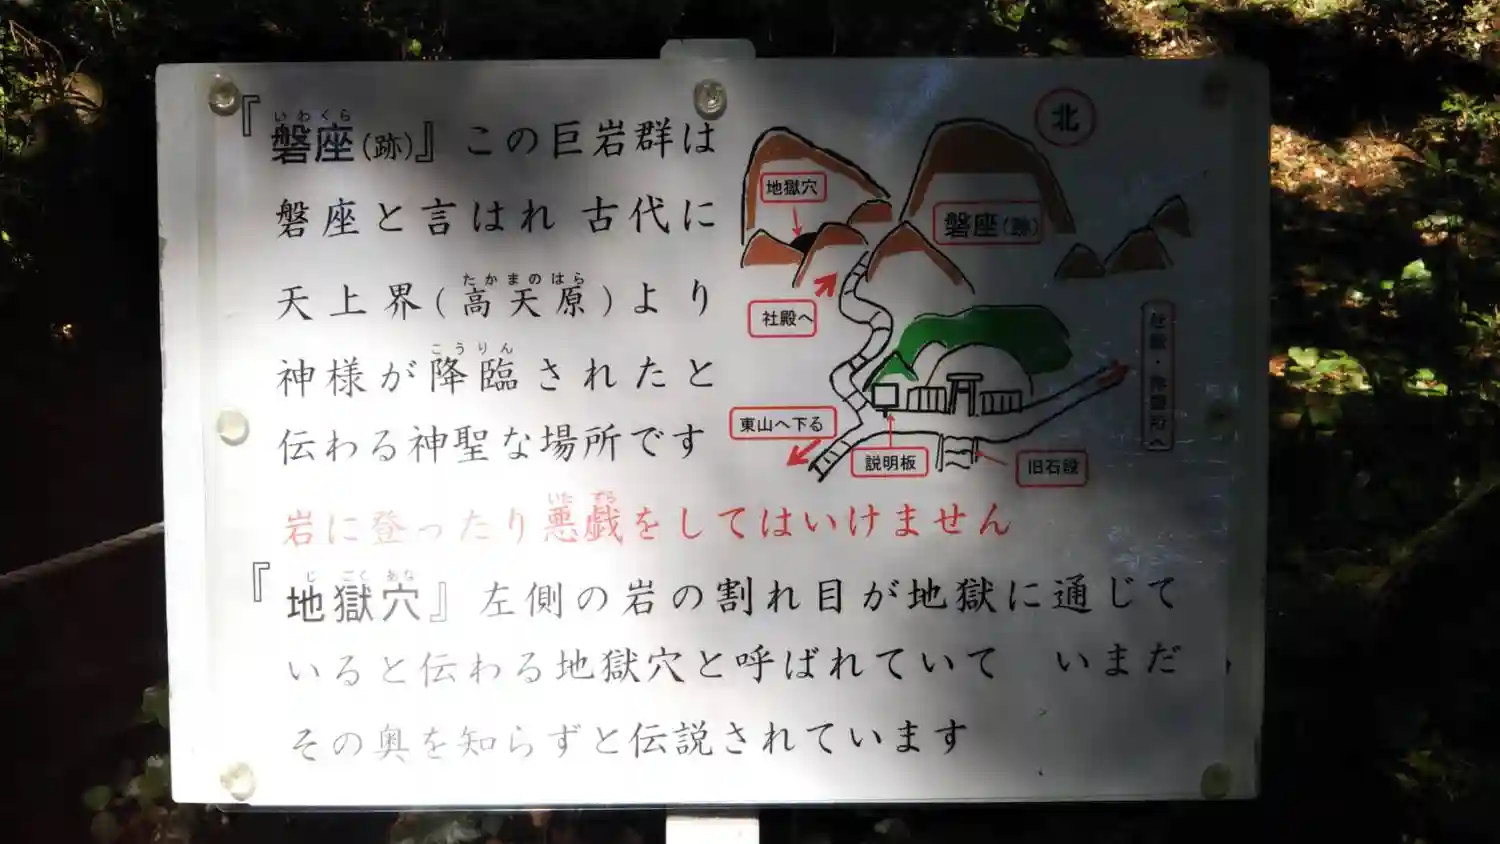 いわくら
『磐座(跡)』この巨岩群は
磐座と言はれ 古代に
たかまのはら
天上界(高天原)より
こうりん
神様が降臨されたと
伝わる神聖な場所です
いた ずら
岩に登ったり悪戯をしてはいけません
じ ごく あな
『地獄穴』左側の岩の割れ目が地獄に通じて
いると伝わる地獄穴と呼ばれていて いまだ
その奥を知らずと伝説されています
北
地獄穴
磐座(跡)
社殿へ
東山へ下る
説明板
旧石段